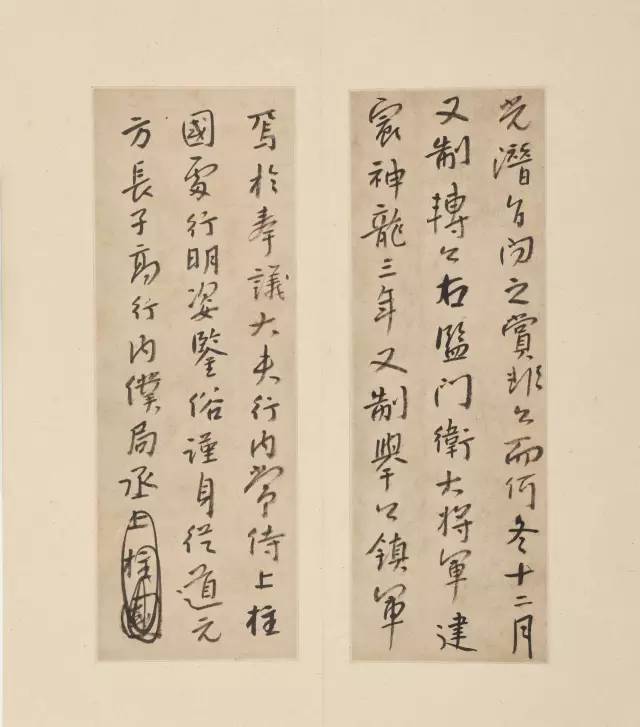 光潛身問之賞非公而何冬十二月
又制轉公右監門衛大將軍建
宸神龍三年又制舉公鎮軍
焉於奉議大夫行內常侍上柱
國處行明姿鑒俗謹身從道元
方長子高行內僕局丞上